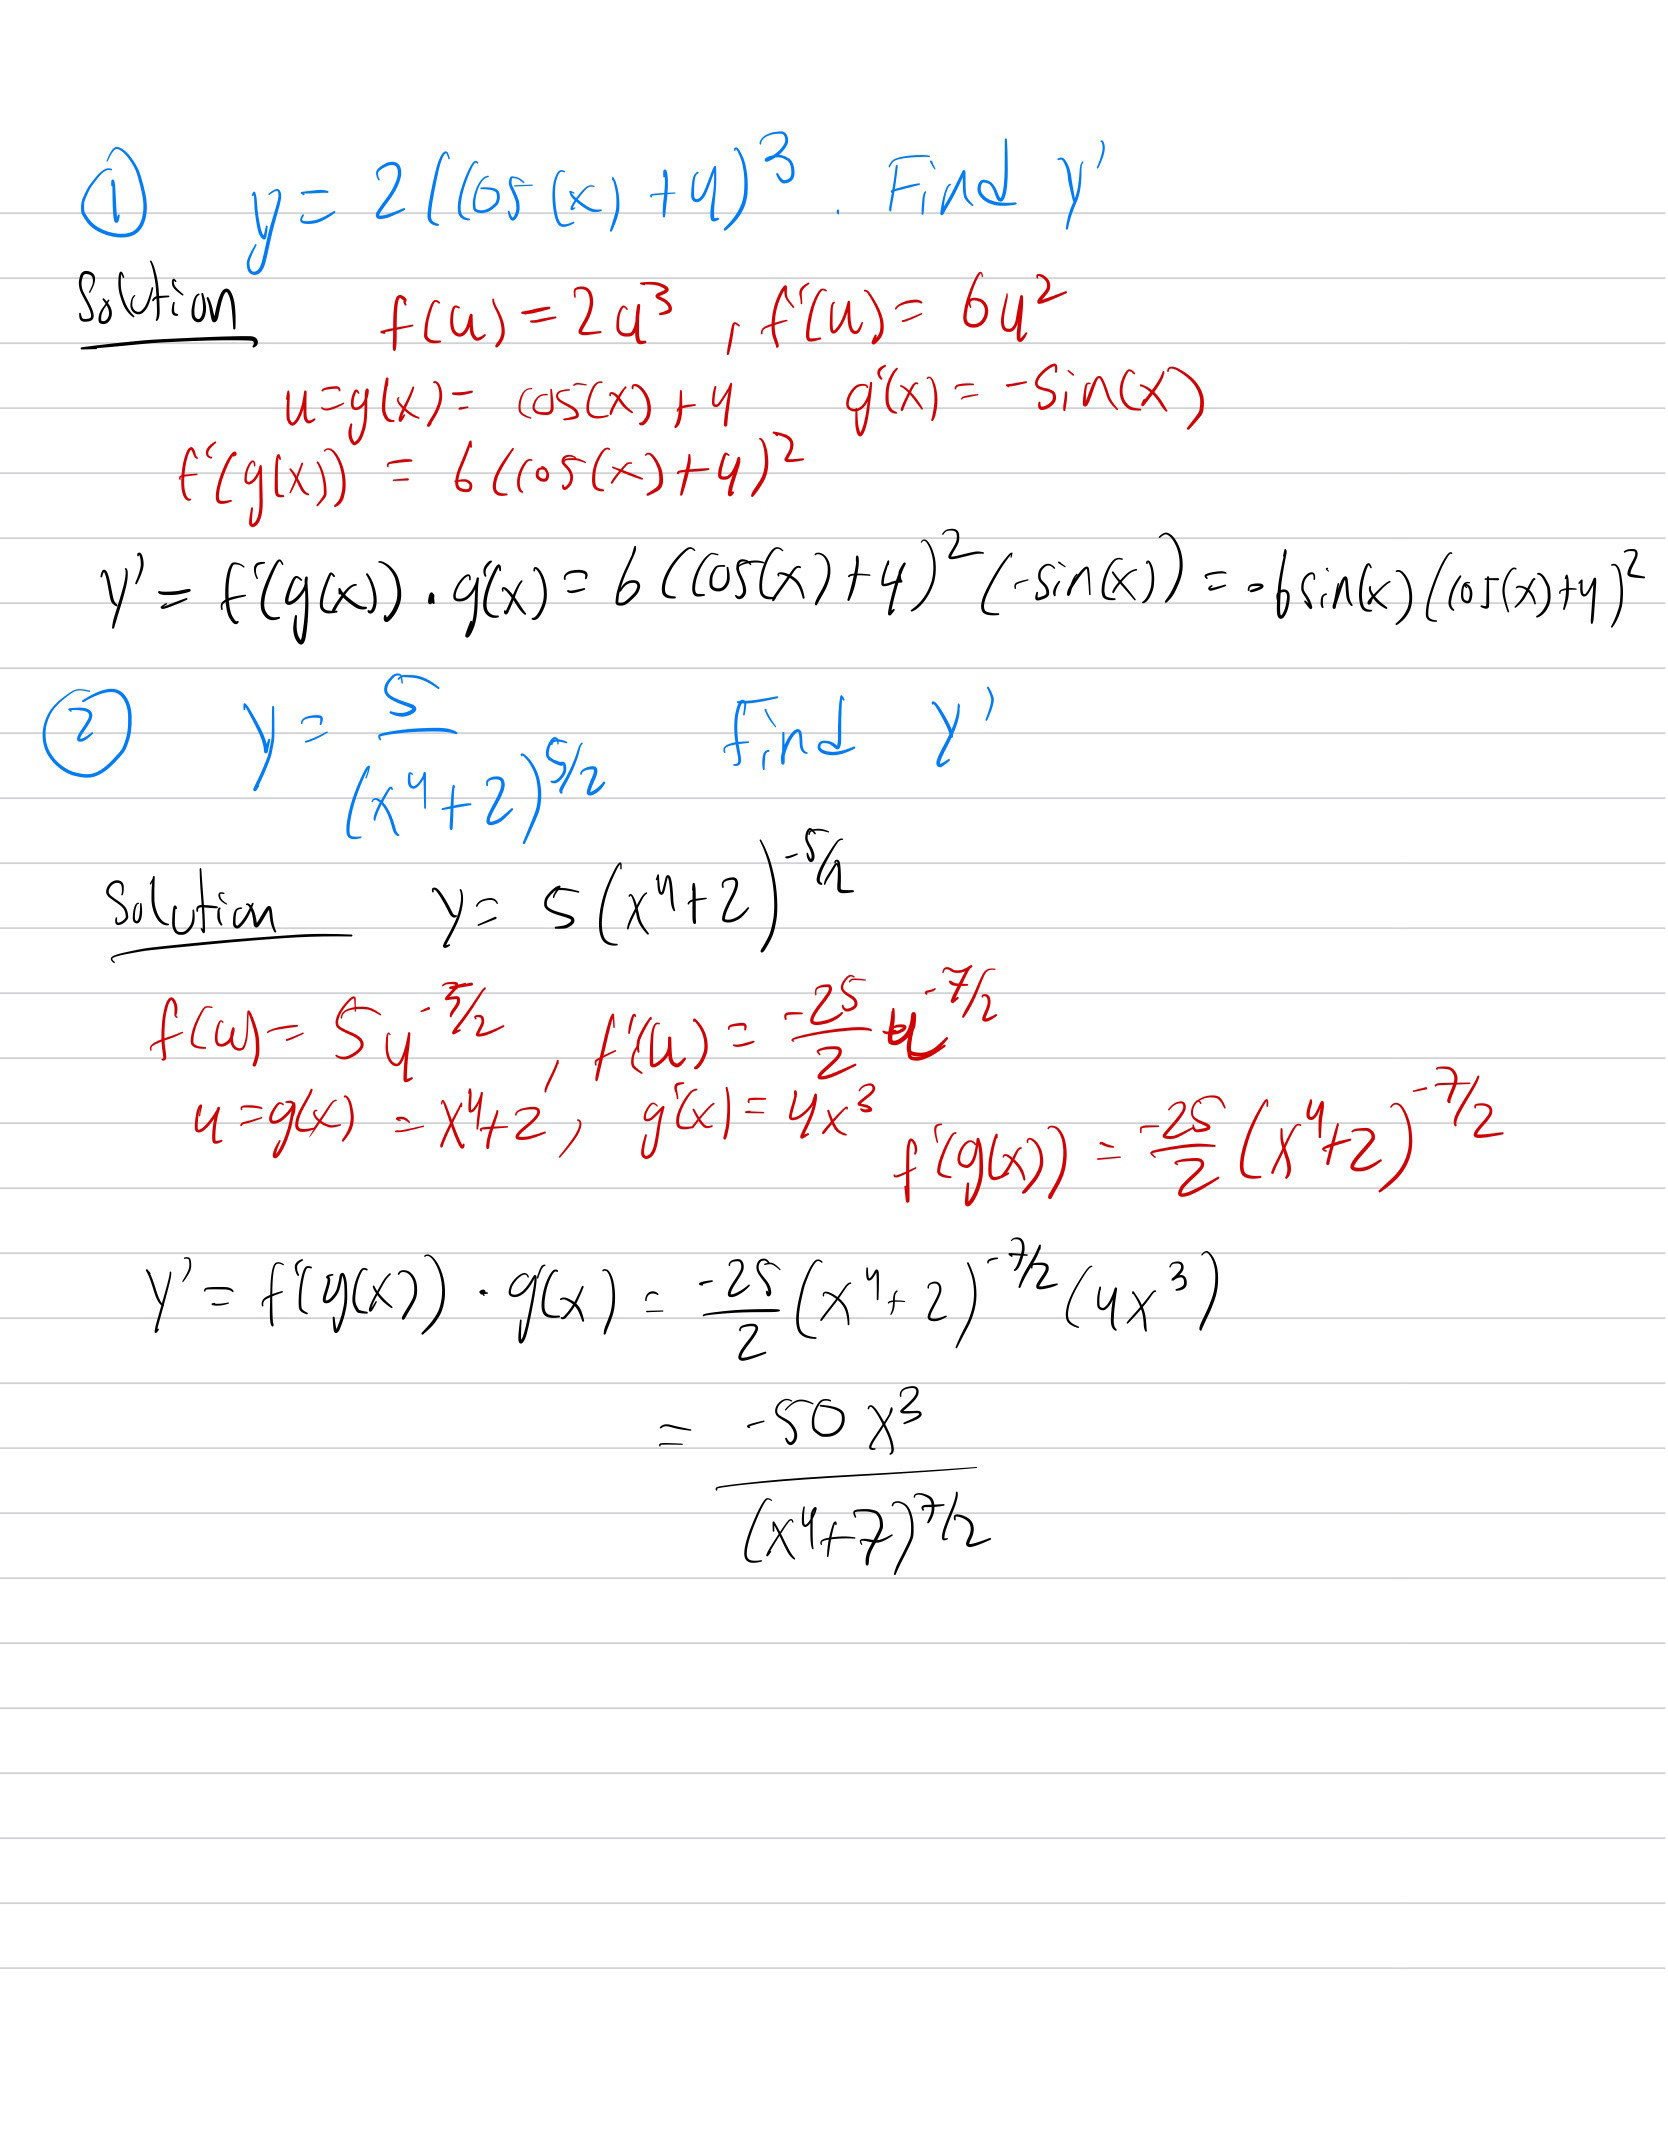 ① y = 2(cos(x) + 4)³ . Find y'
Solution f(u) = 2u³ , f'(u) = 6u²
u = g(x) = cos(x) + 4 g'(x) = -sin(x)
f'(g(x)) = 6(cos(x)+4)²
y' = f'(g(x)) · g'(x) = 6(cos(x)+4)² (-sin(x)) = -6sin(x)(cos(x)+4)²
② y = 5/(x⁴+2)^(5/2) Find y'
Solution y = 5(x⁴+2)^(-5/2)
f(u) = 5u^(-5/2) , f'(u) = -25/2 u^(-7/2)
u = g(x) = x⁴+2 , g'(x) = 4x³
f'(g(x)) = -25/2 (x⁴+2)^(-7/2)
y' = f'(g(x)) · g'(x) = -25/2 (x⁴+2)^(-7/2) (4x³)
= -50x³/(x⁴+7)^(7/2)